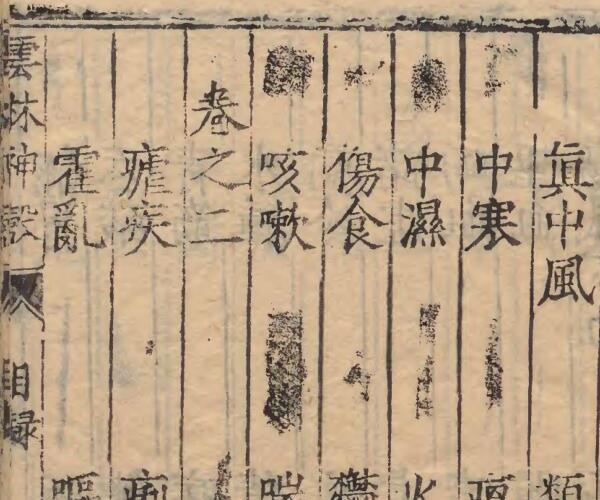 眞中風
中寒
中濕
傷食
咳嗽
卷之二
瘧疾
霍亂
雲林神彀
目録